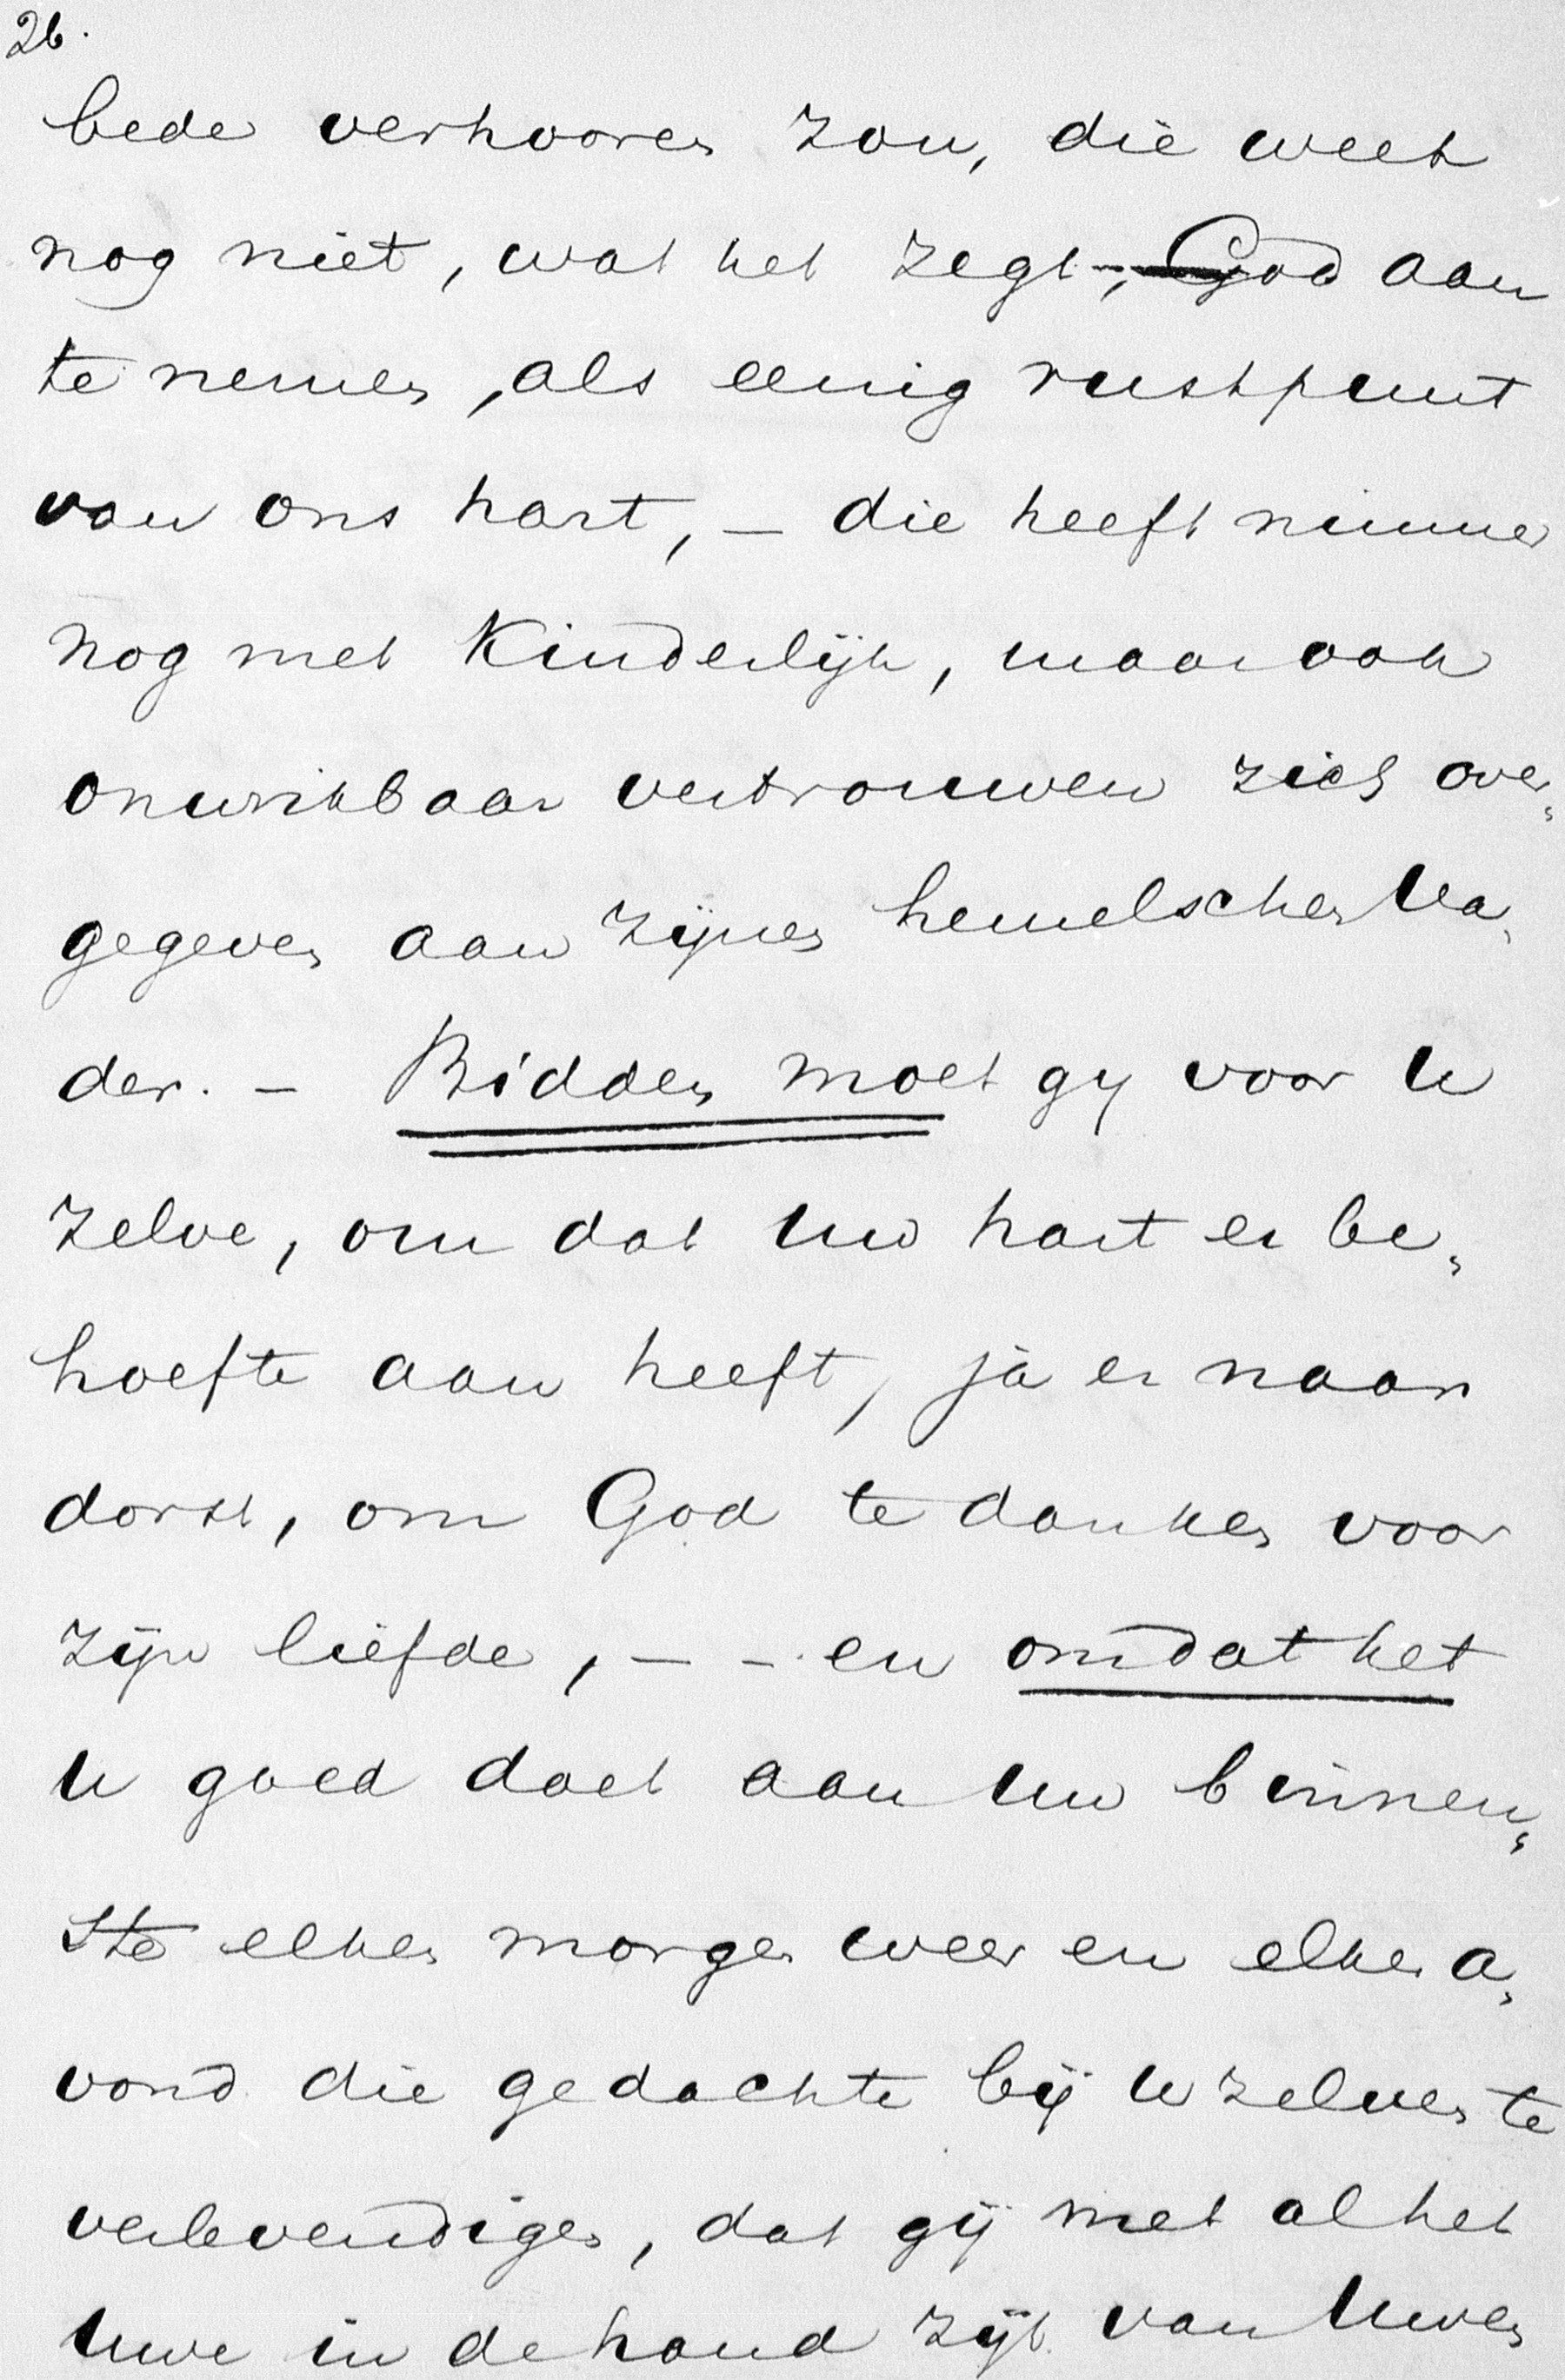 26.
bede verhooren zou, die weet
nog niet, wat het zegt, God aan
te nemen, als eenig rustpunt
van ons hart, — die heeft nimmer
nog met kinderlijk, maar ook
onwrikbaar vertrouwen zich over„
gegeven aan zijnen hemelschen Va„
der. — Bidden moet gy voor U
zelve, om dat Uw hart er be„
hoefte aan heeft, ja er naar
dorst, om God te danken voor
zijn liefde, — — en omdat het
U goed doet aan Uw binnen„
ste elken morgen weer en elken a„
vond die gedachte bij U zelven te
verlevendigen, dat gij met al het
Uwe in de hand zijt van Uwen